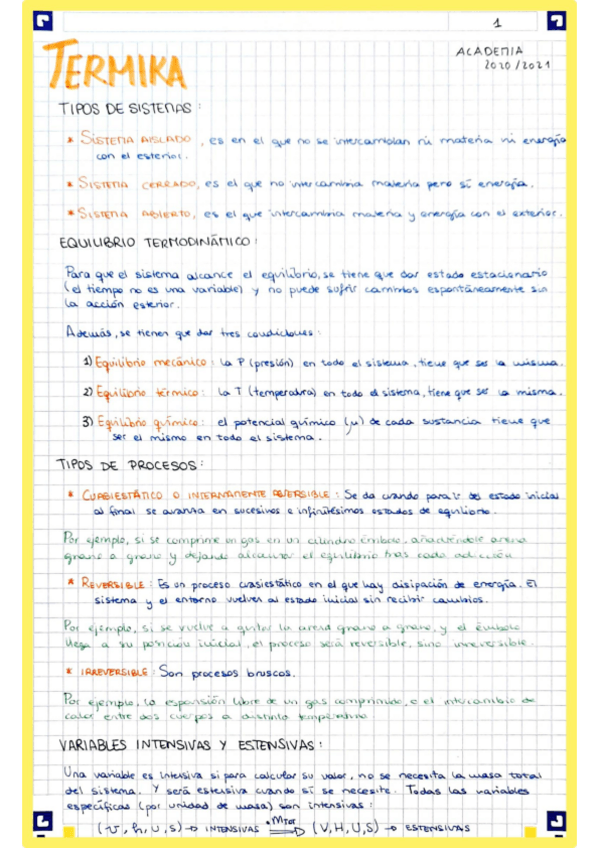 1
ACADEMIA
2020/2021
TERMIKA
TIPOS DE SISTEMAS :
* SISTEMA AISLADO, es en el que no se intercambian ni materia ni energía
con el esterior.
* SISTEMA CERRADO, es el que no intercambia materia pero sí energía.
* SISTEMA ABIERTO, es el que intercambia materia y energía con el exterior.
EQUILIBRIO TERMODINÁMICO :
Para que el sistema alcance el equilibrio, se tiene que dar estado estacionario
(el tiempo no es una variable) y no puede sufrir cambios espontáneamente sin
la acción esterior.
Además, se tienen que dar tres condiciones :
1) Equilibrio mecánico : la P (presión) en todo el sistema, tiene que ser la misma.
2) Equilibrio térmico : la T (temperatura) en todo el sistema, tiene que ser la misma.
3) Equilibrio químico : el potencial químico (μ) de cada sustancia tiene que
ser el mismo en todo el sistema.
TIPOS DE PROCESOS :
* CUASIESTÁTICO O INTERNAMENTE REVERSIBLE : Se da cuando para ir del estado inicial
al final se avanza en sucesivos e infinitésimos estados de equilibrio.
Por ejemplo, si se comprime un gas en un cilindro émbolo, añadiéndole arena
grano a grano y dejando alcanzar el equilibrio tras cada adicción
* REVERSIBLE : Es un proceso cuasiestático en el que hay disipación de energía. El
sistema y el entorno vuelven al estado inicial sin recibir cambios.
Por ejemplo, si se vuelve a quitar la arena grano a grano, y el émbolo
llega a su posición inicial, el proceso será reversible, sino irreversible.
* IRREVERSIBLE : Son procesos bruscos.
Por ejemplo, la espansión libre de un gas comprimido, o el intercambio de
calor entre dos cuerpos a distinta temperatura
VARIABLES INTENSIVAS Y ESTENSIVAS :
Una variable es intensiva si para calcular su valor, no se necesita la masa total
del sistema. Y será estensiva cuando sí se necesite. Todas las variables
específicas (por unidad de masa) son intensivas :
(v, h, u, s) → INTENSIVAS ·MTOT ⟹ (V, H, U, S) → ESTENSIVAS